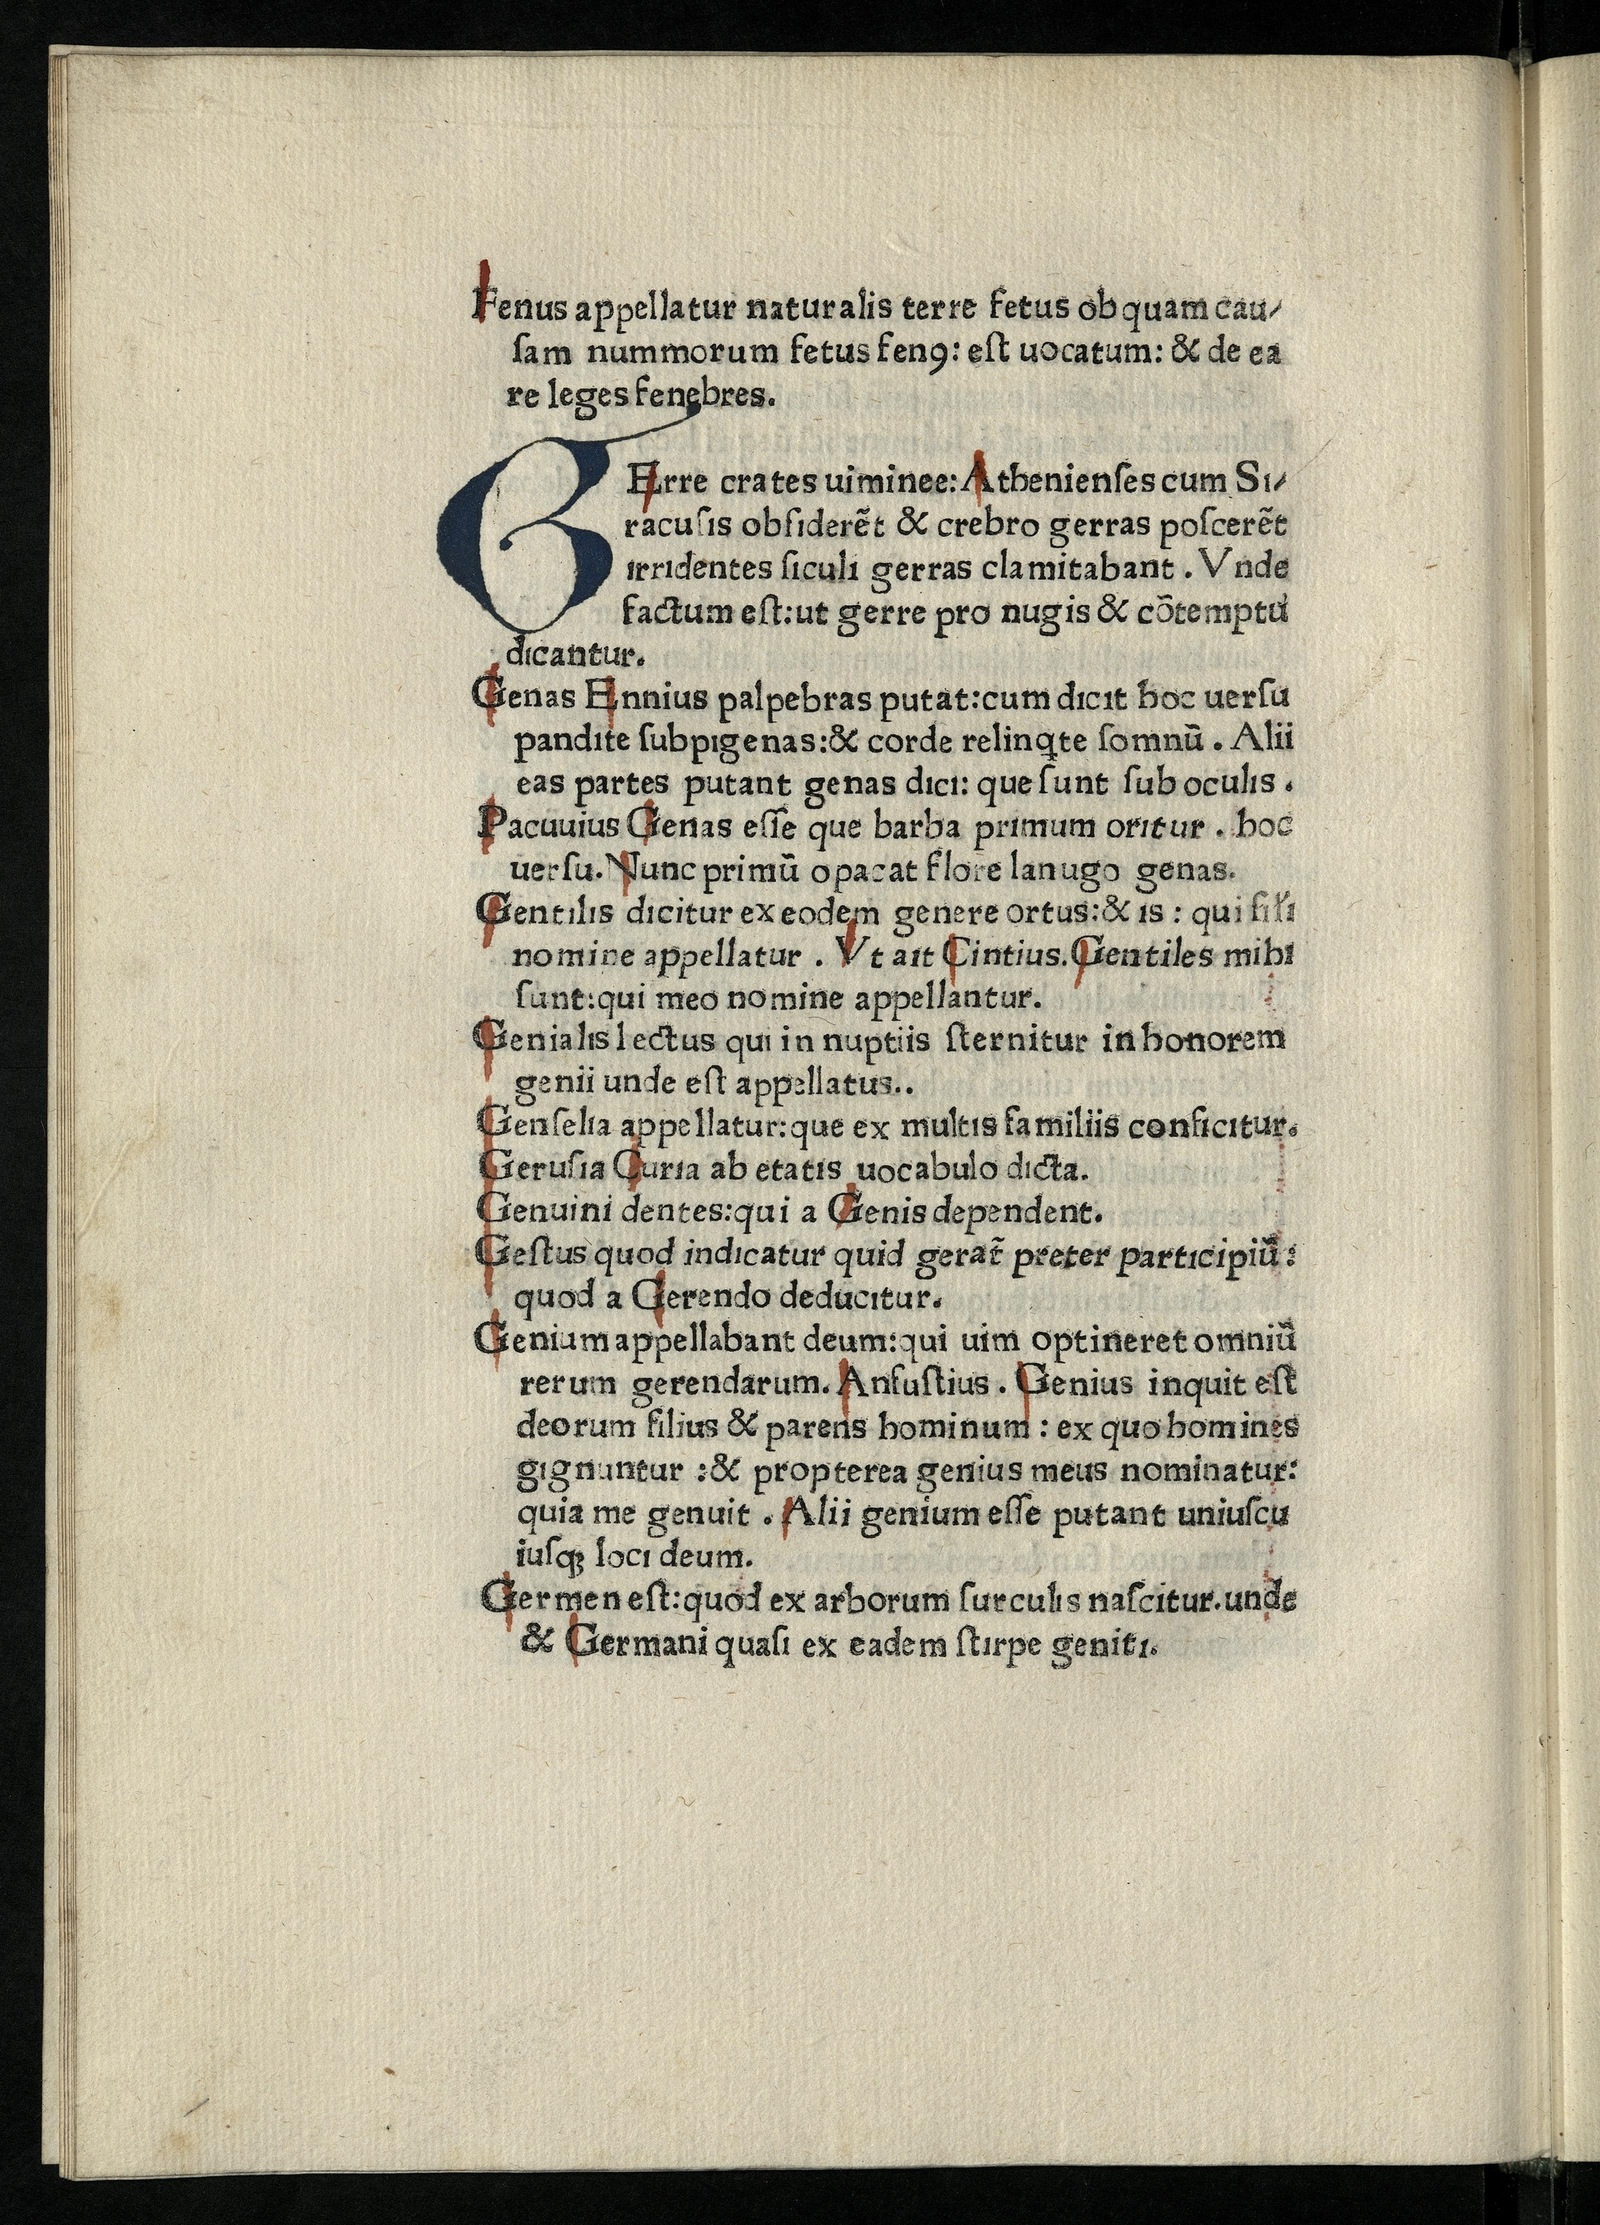 Fenus appellatur naturalis terre fetus ob quam cau/
ſam nummorum fetus fenꝯ: eſt uocatum: & de ea
re leges fenebres.
GErre crates uiminee: Athenienſes cum Si/
racuſis obſiderẽt & crebro gerras poſcerẽt
irridentes ſiculi gerras clamitabant . Vnde
factum eſt: ut gerre pro nugis & cõtemptũ
dicantur.
Genas Ennius palpebras putat: cum dicit hoc uerſu
pandite ſubpigenas: & corde relinq̨te ſomnũ . Alii
eas partes putant genas dici: que ſunt ſub oculis .
Pacuuius Genas eſſe que barba primum oritur . hoc
uerſu. Nunc primũ opacat flore lanugo genas.
Gentilis dicitur ex eodem genere ortus: & is : qui
nomine appellatur . Vt ait Cintius. Gentiles mihi
ſunt: qui meo nomine appellantur.
Genialis lectus qui in nuptiis ſternitur in honorem
genii unde eſt appellatus..
Genſelia appellatur: que ex multis familiis conficitur.
Geruſia Curia ab etatis uocabulo dicta.
Genuini dentes: qui a Genis dependent.
Geſtus quod indicatur quid gerat̃ preter participiũ :
quod a Gerendo deducitur.
Genium appellabant deum: qui uim optineret omniũ
rerum gerendarum. Anfuſtius . Genius inquit eſt
deorum filius & parens hominum : ex quo homines
gignuntur : & propterea genius meus nominatur:
quia me genuit . Alii genium eſſe putant uniuſcu
iuſqꝫ loci deum.
Germen eſt: quod ex arborum ſurculis naſcitur. unde
& Germani quaſi ex eadem ſtirpe geniti.